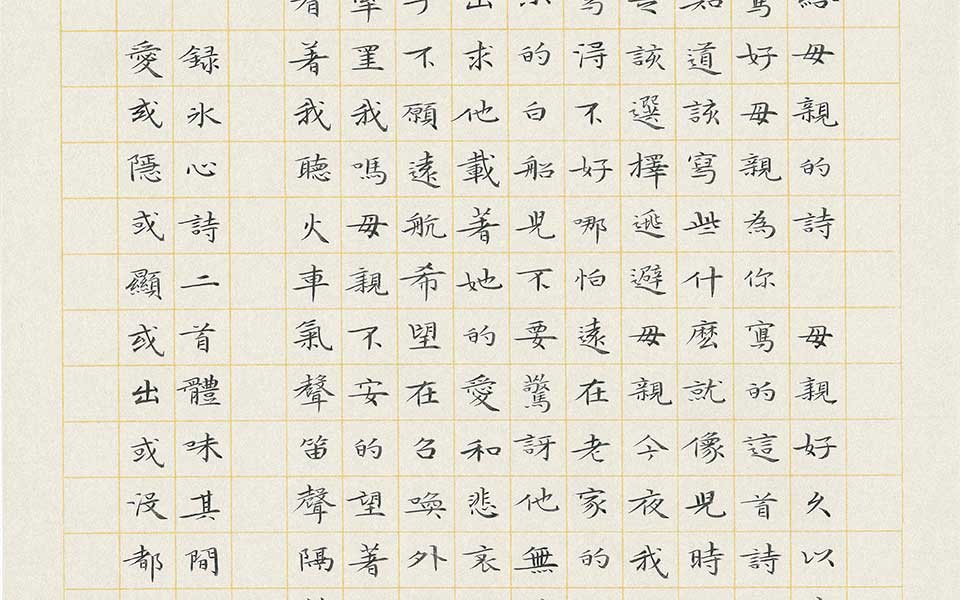 給母親的詩 母親好久以
寫好母親為你寫的這首詩
知道該寫些什麼就像兒時
該選擇逃避母親今夜我
寫得不好哪怕遠在老家的
的白船兒不要驚訝他無
出求他載著她的愛和悲哀
不願遠航希望在召喚外
牽罣我嗎母親不安的望著
著我聽火車氣聲笛聲隔
録冰心詩二首體味其間
愛或隱或顯或出或沒都